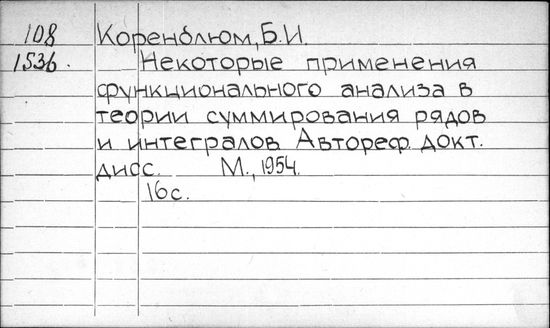 108 Коренблюм, Б.И.
1536. Некоторые применения
функционального анализа в
теории суммирования рядов
и интегралов. Автореф. докт.
дисс. М., 1954.
16с.